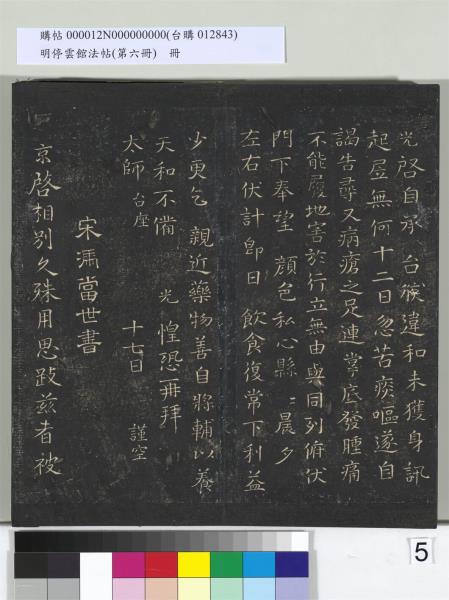 購帖 000012N000000000(台購 012843)
明停雲館法帖(第六冊) 冊
光啓自承 台候違和未獲身訊
起居無何十二日忽苦痰嘔遂自
謁告尋又病瘡之足連掌底發腫痛
不能履地害於行立無由與同列俯伏
門下奉望 顏色私心縣〻晨夕
左右伏計即日 飲食復常下利益
少更乞 親近藥物善自將輔以養
天和不備 光 惶恐再拜
太師 台座 十七日 謹空
宋馮當世書
京啓相別久殊用思跂茲者被
5